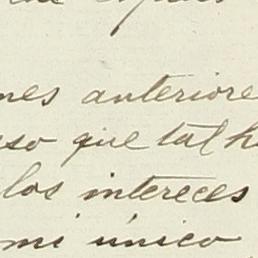 nes anteriore
so que tal h
los intereces
mi único